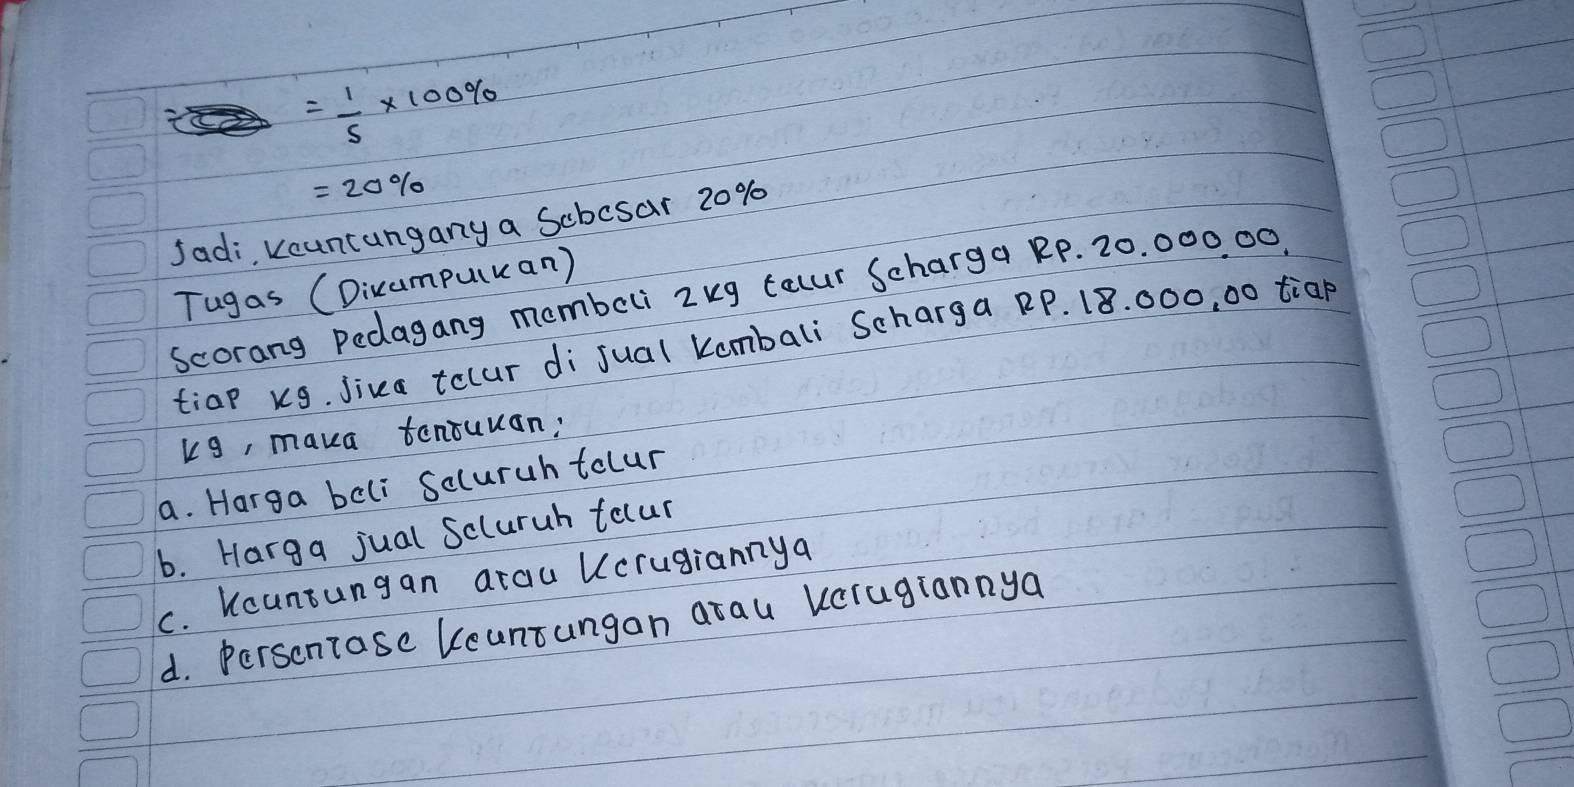 = 1/5 × 100%
= 20%
Jadi, Keuntunganya Sebesar 20%
Tugas (Dikumpulkan)
Seorang pedagang membeli 2 kg telur Seharga RP. 20.000,00.
tiap kg. Jika telur di jual Kembali Seharga RP. 18.000,00 tiap
kg, maka tentukan:
a. Harga beli Seluruh telur
b. Harga jual Seluruh telur
c. Keuntungan atau Kerugiannya
d. Persentase Keuntungan atau Kerugiannya